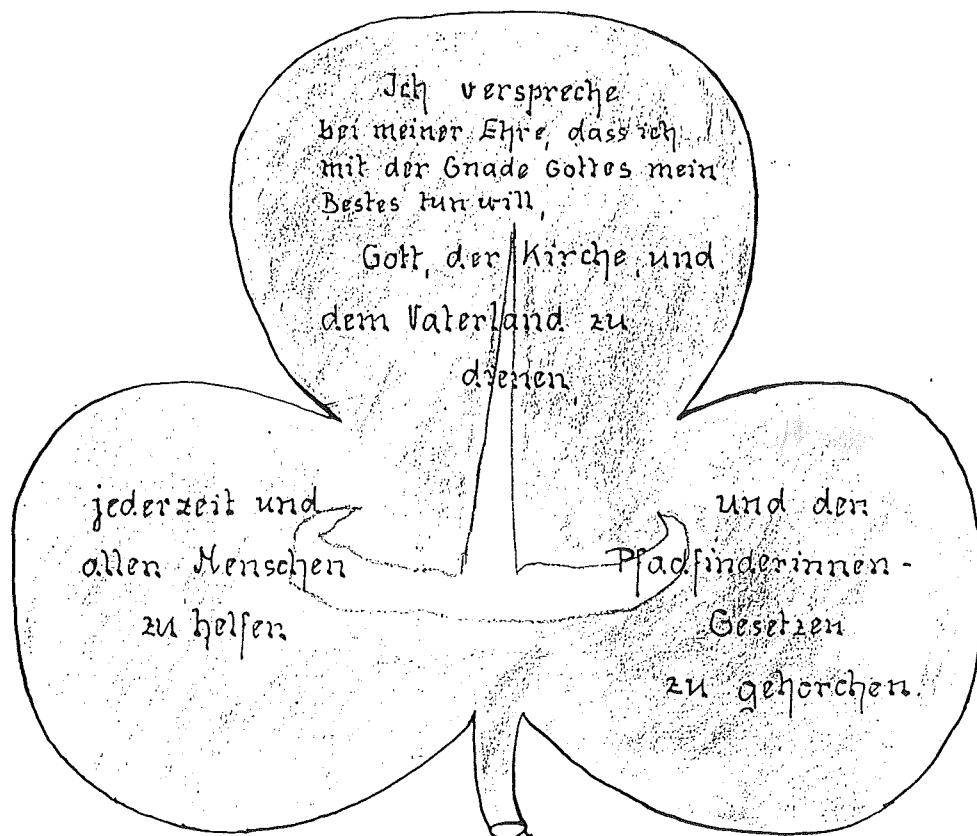 Ich verspreche
bei meiner Ehre, dass ich
mit der Gnade Gottes mein
Bestes tun will,
Gott, der Kirche, und
dem Vaterland zu
dienen,
jederzeit und
allen Menschen
zu helfen
und den
Pfadfinderinnen-
Gesetzen
zu gehorchen.